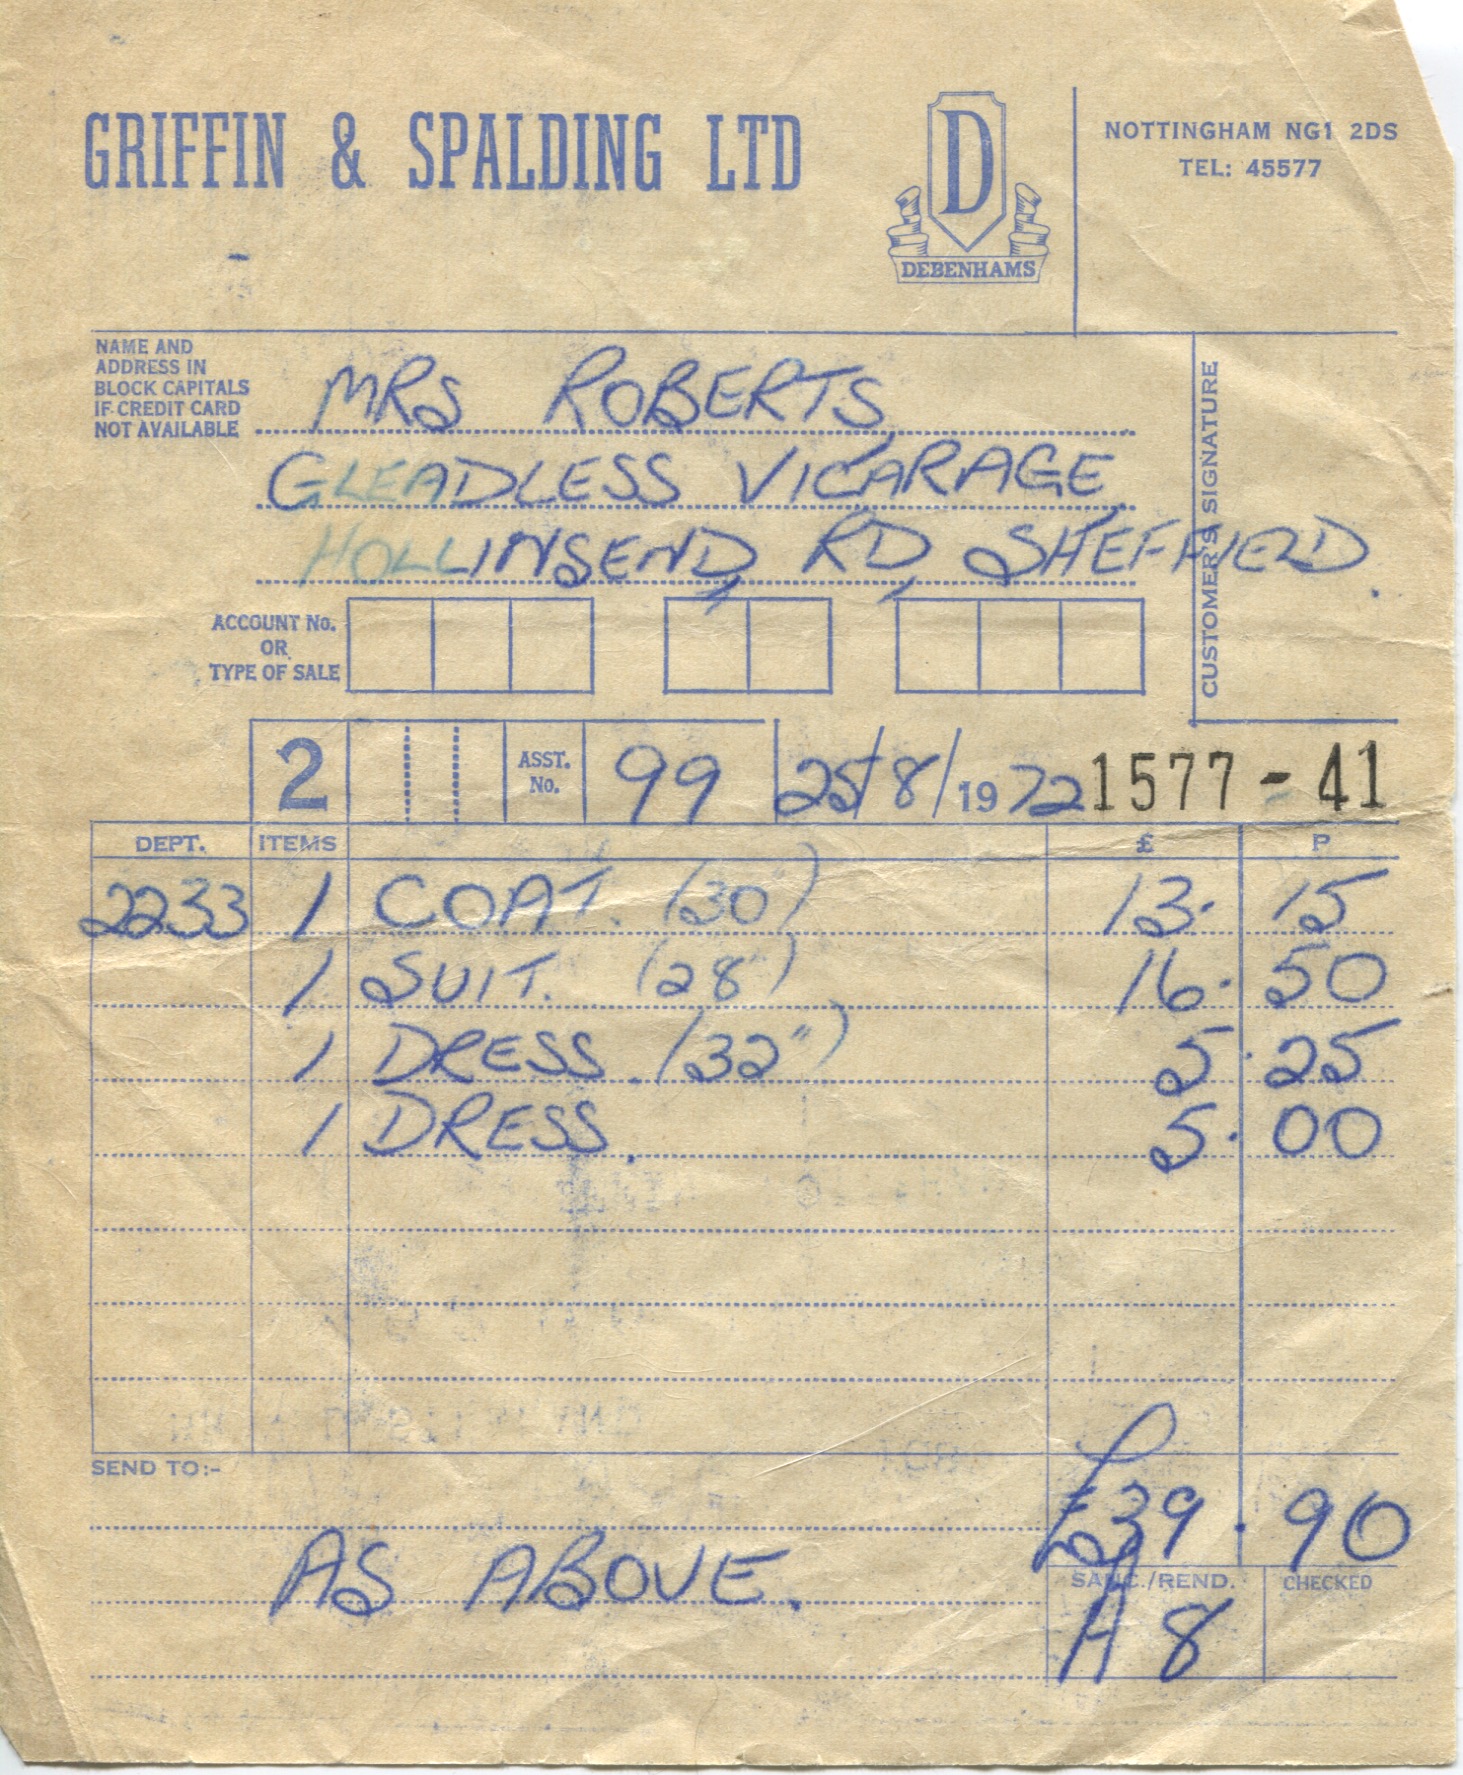 GRIFFIN & SPALDING LTD
D
DEBENHAMS
NOTTINGHAM NG1 2DS
TEL: 45577
NAME AND
ADDRESS IN
BLOCK CAPITALS
IF CREDIT CARD
NOT AVAILABLE
MRS ROBERTS,
GLEADLESS VICARAGE,
HOLLINSEND, RD, SHEFFIELD.
CUSTOMER'S SIGNATURE
ACCOUNT No.
OR
TYPE OF SALE
2 ASST. No. 99 25/8/1972 1577-41
DEPT. ITEMS £ P
2233 1 COAT. (30) 13. 15
1 SUIT. (28") 16. 50
1 DRESS. (32") 5. 25
1 DRESS. 5. 00
SEND TO:-
£39.90
AS ABOVE.
SANC./REND. CHECKED
A8